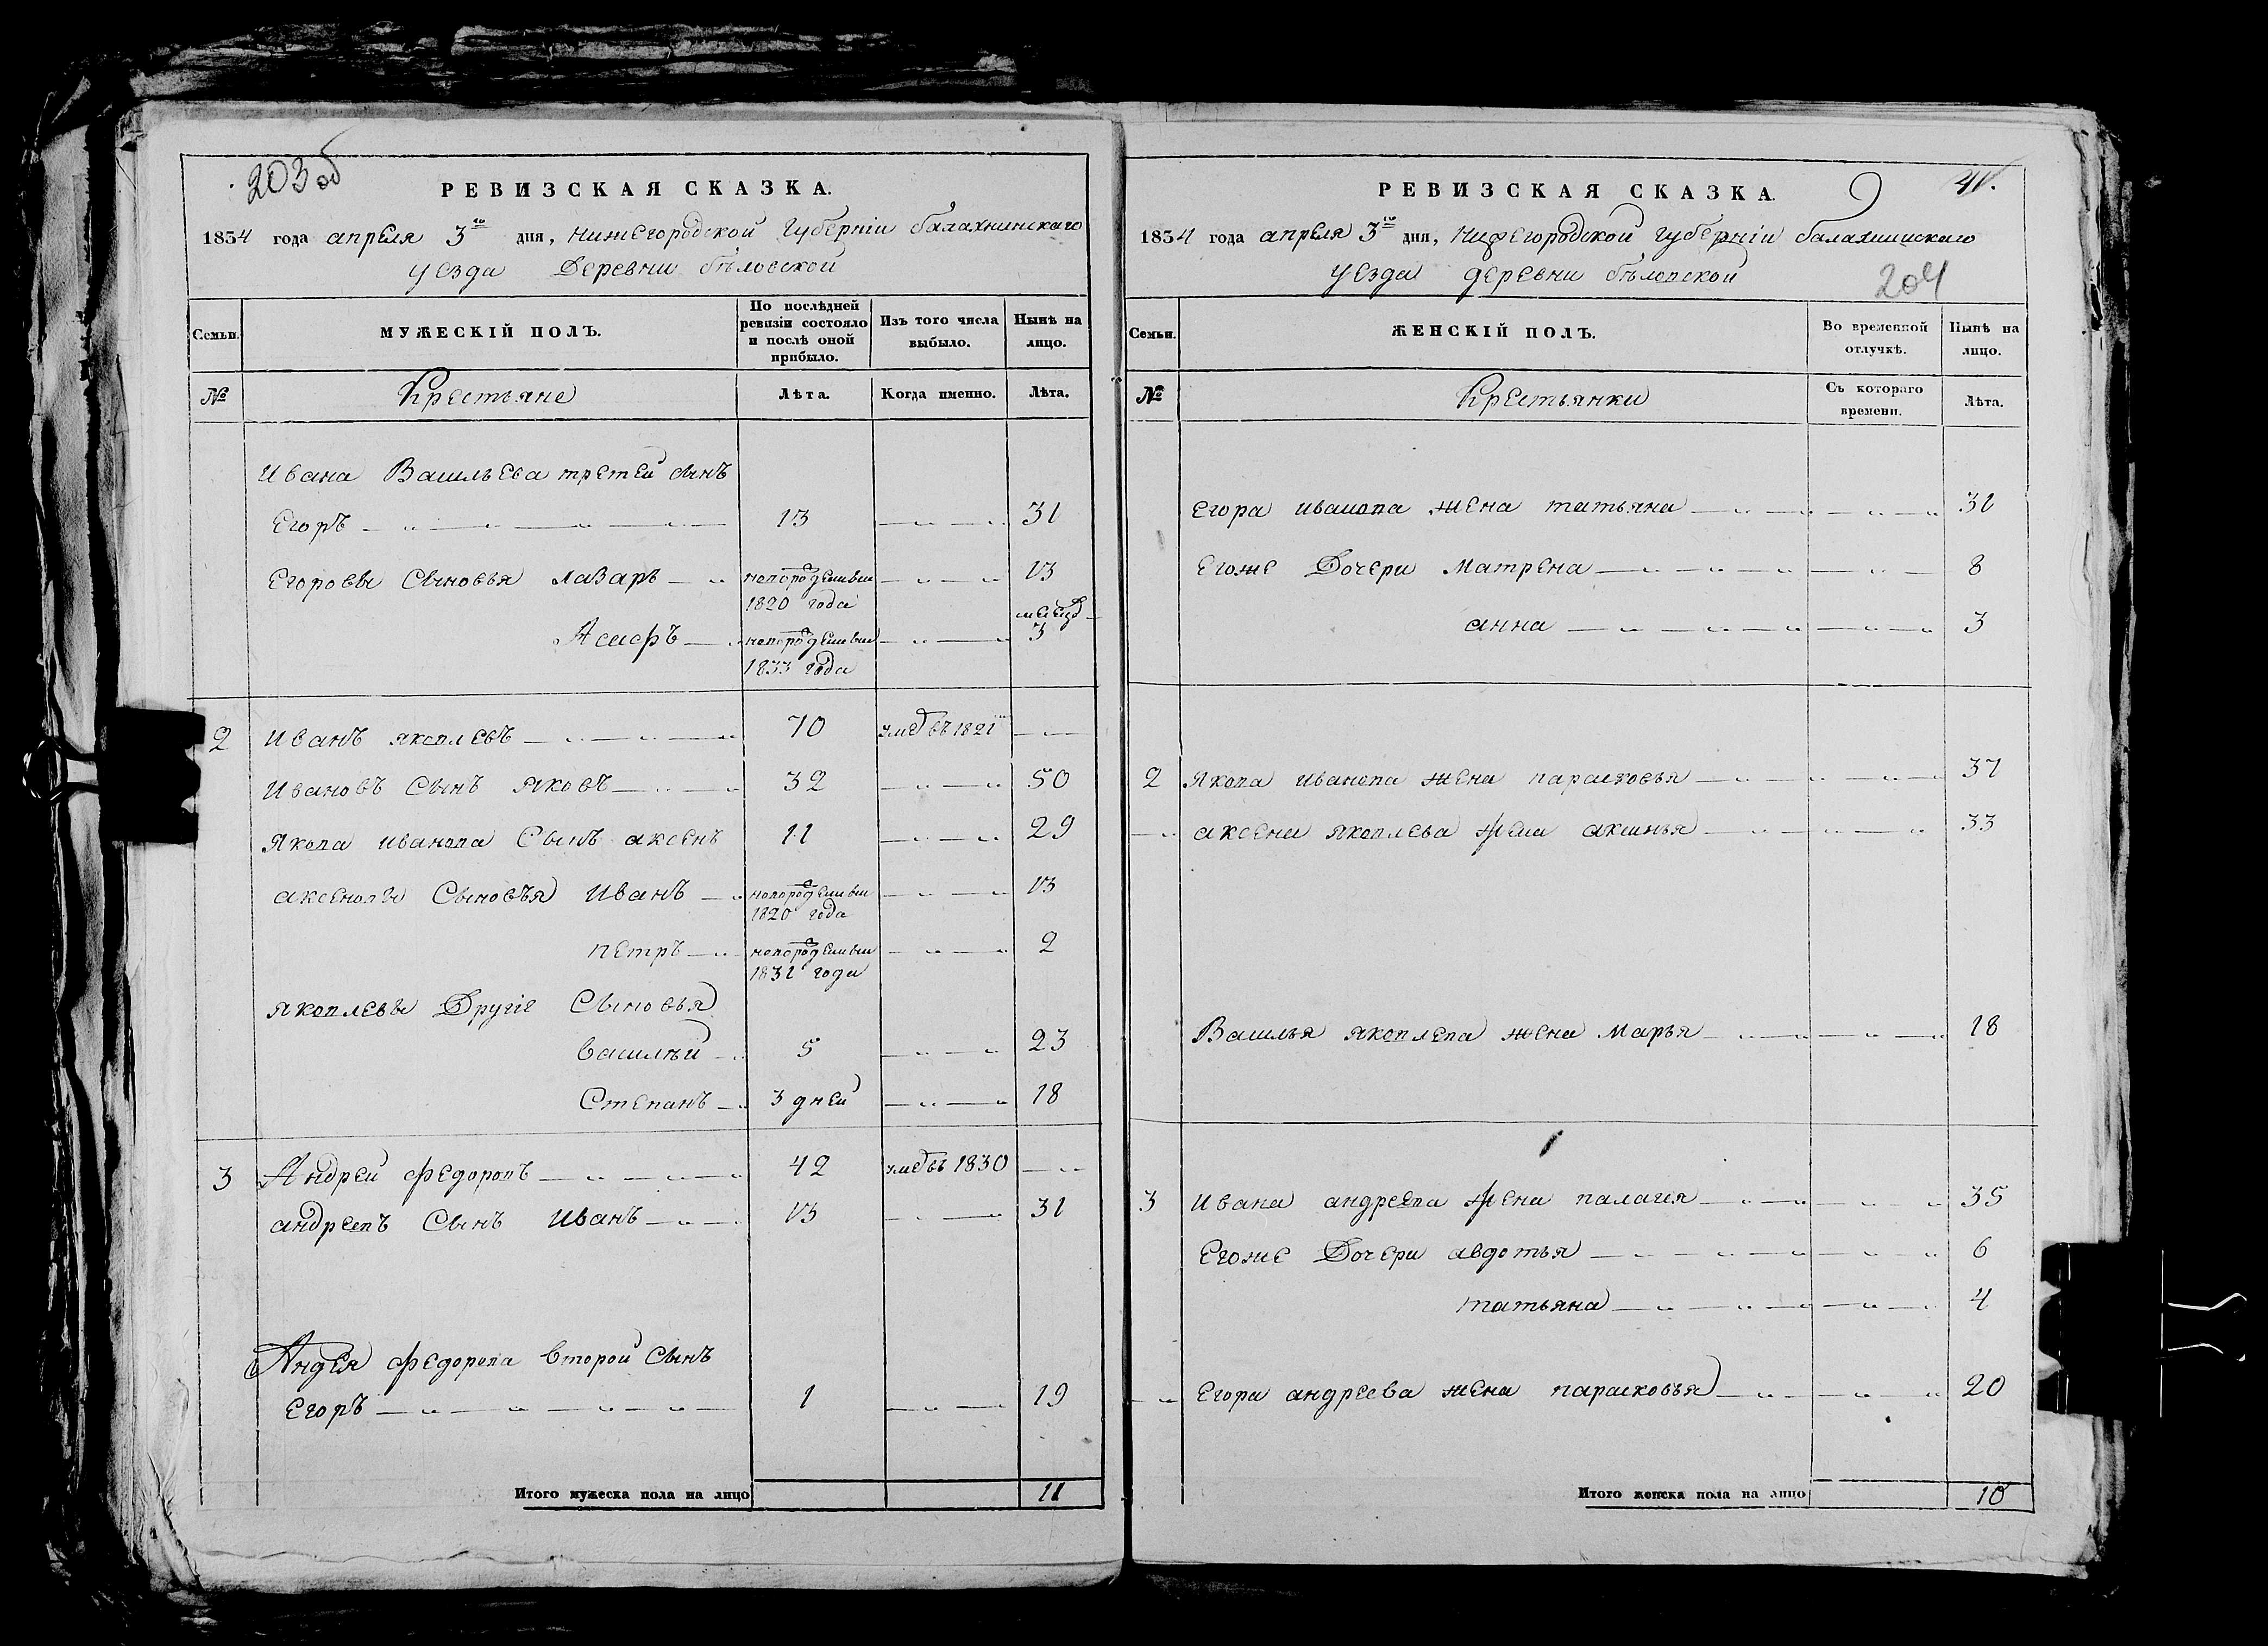 203 об
РЕВИЗСКАЯ СКАЗКА.
1834 года апреля 3го дня, нижегородской губерніи балахнинскаго
уезда деревни бѣловской
Семьи.
МУЖЕСКІЙ ПОЛЪ.
По послѣдней ревизіи состояло и послѣ оной прибыло.
Изъ того числа выбыло.
Нынѣ на лицо.
№
Крестьяне
Лѣта.
Когда именно.
Лѣта.
Ивана Васильева третей сынъ
Егоръ 13 31
Егоровы сыновья лазарь новорожденный 13
1820 года
месяц
Асафъ новорожденный 3
1833 года
2 Иванъ яковлевъ 70 уме въ 1821
Ивановъ сынъ яковъ 32 50
Якова иванова сынъ аксенъ 11 29
аксеновы сыновья Иванъ новорожденный 13
1820 года
петръ новорожденный 2
1831 года
яковлевы другіе сыновья
василѣй 5 23
Степанъ 3 дней 18
3 Андрей федоровъ 42 уме въ 1830
андреевъ сынъ Иванъ 13 31
Андея федорова второй сынъ
Егоръ 1 19
Итого мужеска пола на лицо 11
РЕВИЗСКАЯ СКАЗКА.
9
41.
1834 года апреля 3го дня, нижегородской губерніи балахнинскаго
уезда деревни бѣловской
204
Семьи.
ЖЕНСКІЙ ПОЛЪ.
Во временной отлучкѣ.
Нынѣ на лицо.
№
Крестьянки
Съ котораго времени.
Лѣта.
Егора иванова жена татьяна 31
Егоже дочери Матрена 8
анна 3
2 Якова иванова жена парасковья 37
аксена яковлева жена аксинья 33
Василья яковлева жена Марья 18
3 Ивана андреева жена палагея 35
Егоже дочери авдотья 6
татьяна 4
Егора андреева жена парасковья 20
Итого женска пола на лицо 10